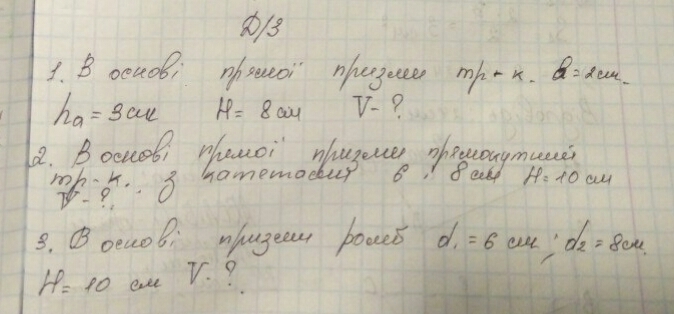 Д/З
1. В основі прямої призми тр-к. a=2см.
ha = 3см H= 8см V-?
2. В основі прямої призми прямокутний
тр-к. з катетами 6 і 8см H=10см
V-?
3. В основі призми ромб d₁=6 см; d₂=8см.
H= 10 см V-?